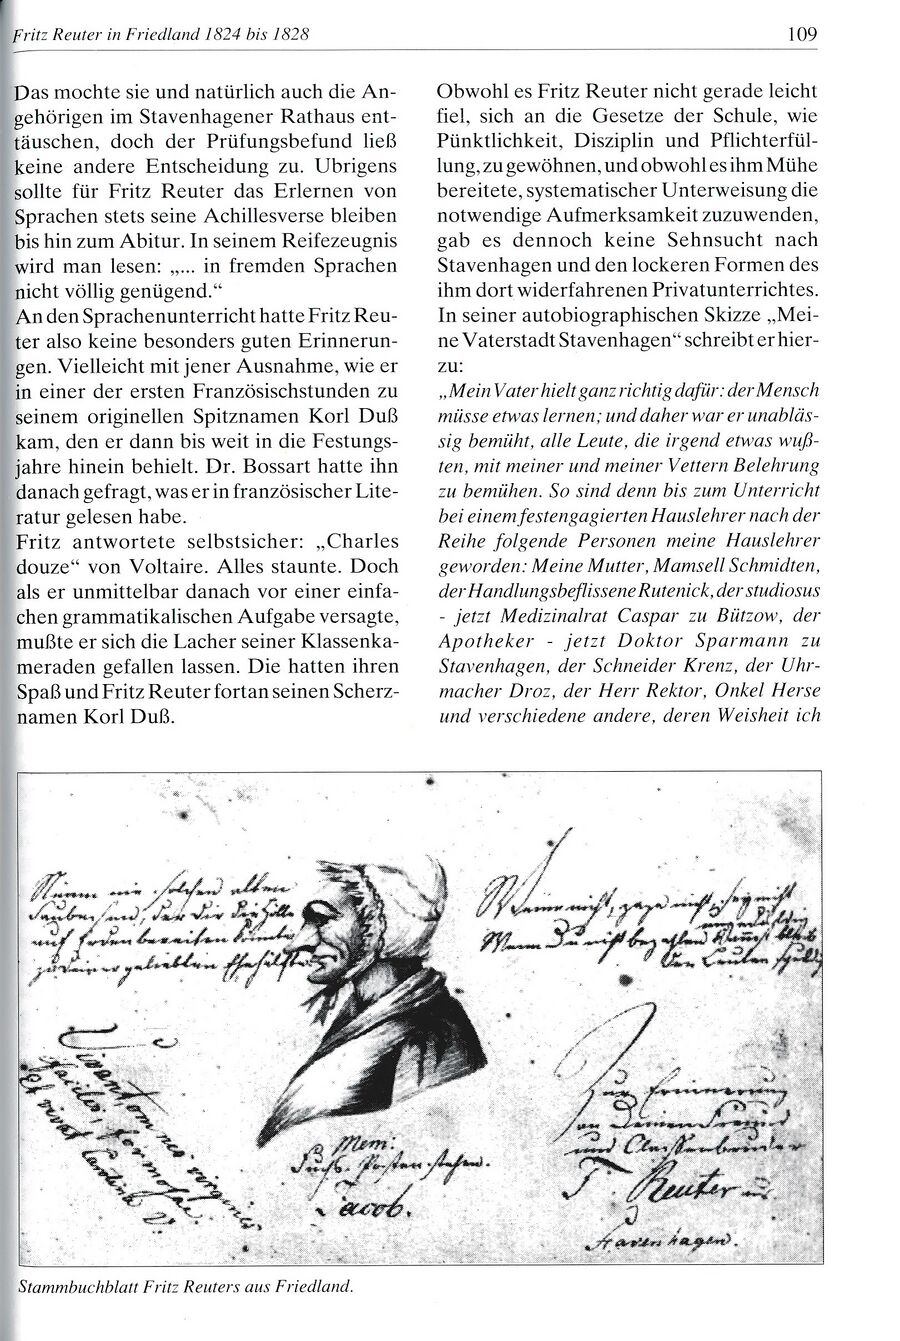 Fritz Reuter in Friedland 1824 bis 1828
109
Das mochte sie und natürlich auch die An-
gehörigen im Stavenhagener Rathaus ent-
täuschen, doch der Prüfungsbefund ließ
keine andere Entscheidung zu. Ubrigens
sollte für Fritz Reuter das Erlernen von
Sprachen stets seine Achillesverse bleiben
bis hin zum Abitur. In seinem Reifezeugnis
wird man lesen: „... in fremden Sprachen
nicht völlig genügend.“
An den Sprachenunterricht hatte Fritz Reu-
ter also keine besonders guten Erinnerun-
gen. Vielleicht mit jener Ausnahme, wie er
in einer der ersten Französischstunden zu
seinem originellen Spitznamen Korl Duß
kam, den er dann bis weit in die Festungs-
jahre hinein behielt. Dr. Bossart hatte ihn
danach gefragt, was er in französischer Lite-
ratur gelesen habe.
Fritz antwortete selbstsicher: „Charles
douze“ von Voltaire. Alles staunte. Doch
als er unmittelbar danach vor einer einfa-
chen grammatikalischen Aufgabe versagte,
mußte er sich die Lacher seiner Klassenka-
meraden gefallen lassen. Die hatten ihren
Spaß und Fritz Reuter fortan seinen Scherz-
namen Korl Duß.
Obwohl es Fritz Reuter nicht gerade leicht
fiel, sich an die Gesetze der Schule, wie
Pünktlichkeit, Disziplin und Pflichterfül-
lung, zu gewöhnen, und obwohl es ihm Mühe
bereitete, systematischer Unterweisung die
notwendige Aufmerksamkeit zuzuwenden,
gab es dennoch keine Sehnsucht nach
Stavenhagen und den lockeren Formen des
ihm dort widerfahrenen Privatunterrichtes.
In seiner autobiographischen Skizze „Mei-
ne Vaterstadt Stavenhagen“ schreibt er hier-
zu:
„Mein Vater hielt ganz richtig dafür: der Mensch
müsse etwas lernen; und daher war er unabläs-
sig bemüht, alle Leute, die irgend etwas wuß-
ten, mit meiner und meiner Vettern Belehrung
zu bemühen. So sind denn bis zum Unterricht
bei einem festengagierten Hauslehrer nach der
Reihe folgende Personen meine Hauslehrer
geworden: Meine Mutter, Mamsell Schmidten,
der Handlungsbeflissene Rutenick, der studiosus
- jetzt Medizinalrat Caspar zu Bützow, der
Apotheker - jetzt Doktor Sparmann zu
Stavenhagen, der Schneider Krenz, der Uhr-
macher Droz, der Herr Rektor, Onkel Herse
und verschiedene andere, deren Weisheit ich
Nimm nie solchen alten
auf Erden bereiten könnte
zu deiner geliebten Ehehälfte
Weine nicht, zage nicht, sey nicht
ungeduldig
Wenn Du nicht bezahlen kannst bleib
den Leuten schuldig
Vivant omnes virgines
faciles, formosae.
Et vivat Carolina V.
Mem:
Jacob.
Zur Erinnerung
an Deinen Freund
und Classenbruder
F. Reuter aus
Stavenhagen.
Stammbuchblatt Fritz Reuters aus Friedland.